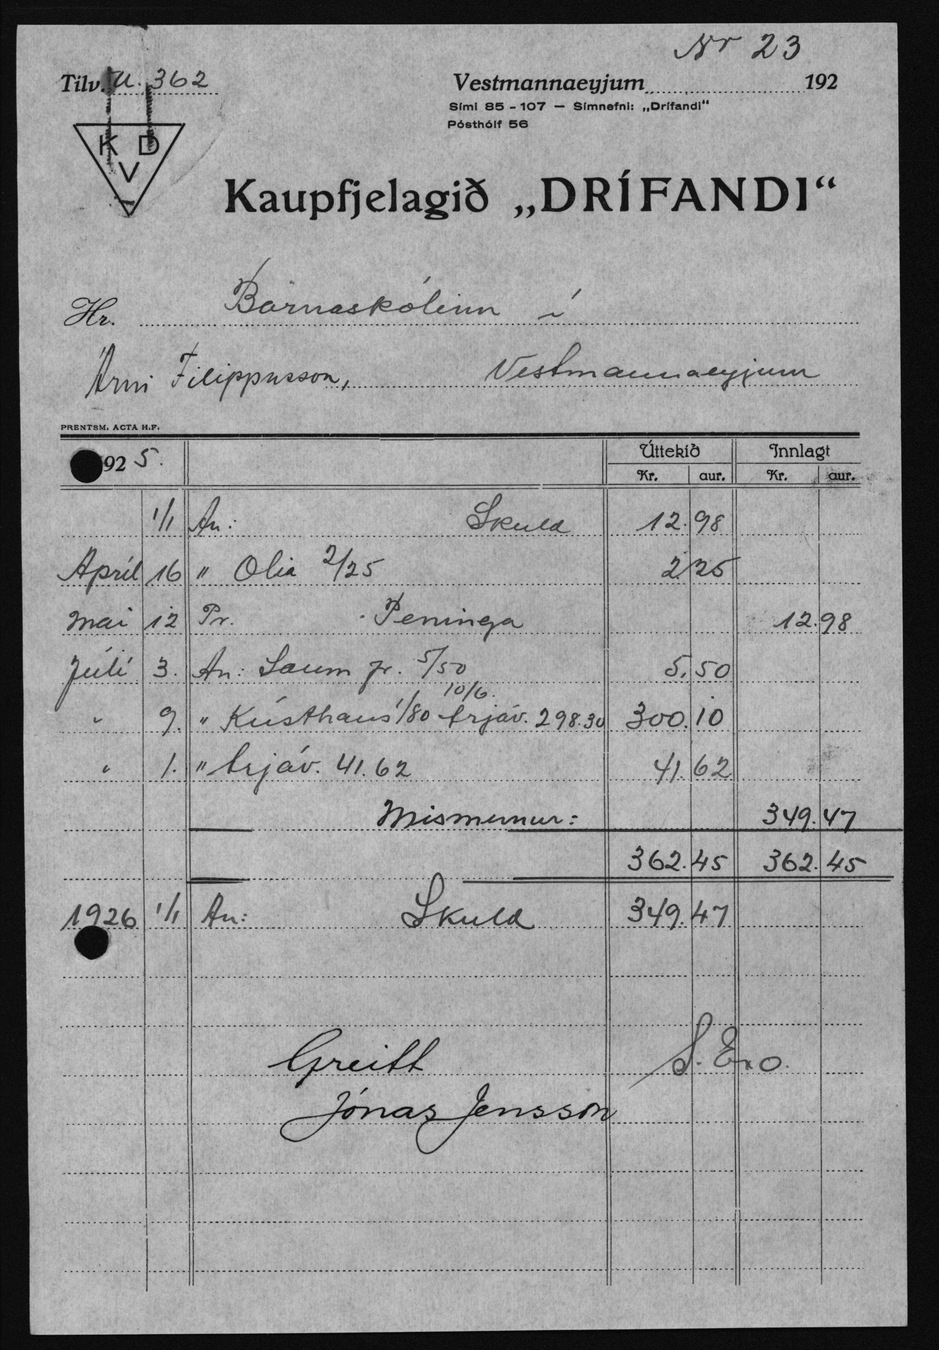 Nr 23
Tilv. U. 362
Vestmannaeyjum 192
Sími 85 - 107 — Símnefni: „Drífandi“
Pósthólf 56
K D
V
Kaupfjelagið „DRÍFANDI“
Hr. Barnaskólinn í
Árni Filippusson, Vestmannaeyjum
PRENTSM. ACTA H.F.
Úttekið Innlagt
925. Kr. aur. Kr. aur.
1/1 An: Skuld 12.98
Apríl 16 " Olia 2/25 2 25
Mai 12 Pr. Peninga 12.98
Júlí 3. An: Saum fr. 5/50 5.50
10/6.
" 9. " Kústhaus 1/80 trjáv. 298.30 300.10
" 1. " trjáv. 41.62 41.62
Mismunur: 349.47
362.45 362.45
1926 1/1 An: Skuld 349.47
Greitt S. E. o.
Jónas Jensson